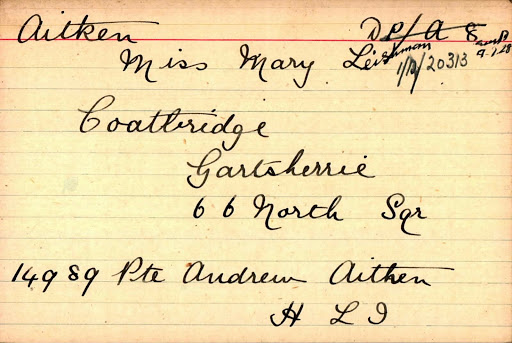 Aitken DP/A 8
Miss Mary Leishman 1/D/20313
Coatbridge
Gartsherrie
66 North Sqr
14989 Pte Andrew Aitken
H L I